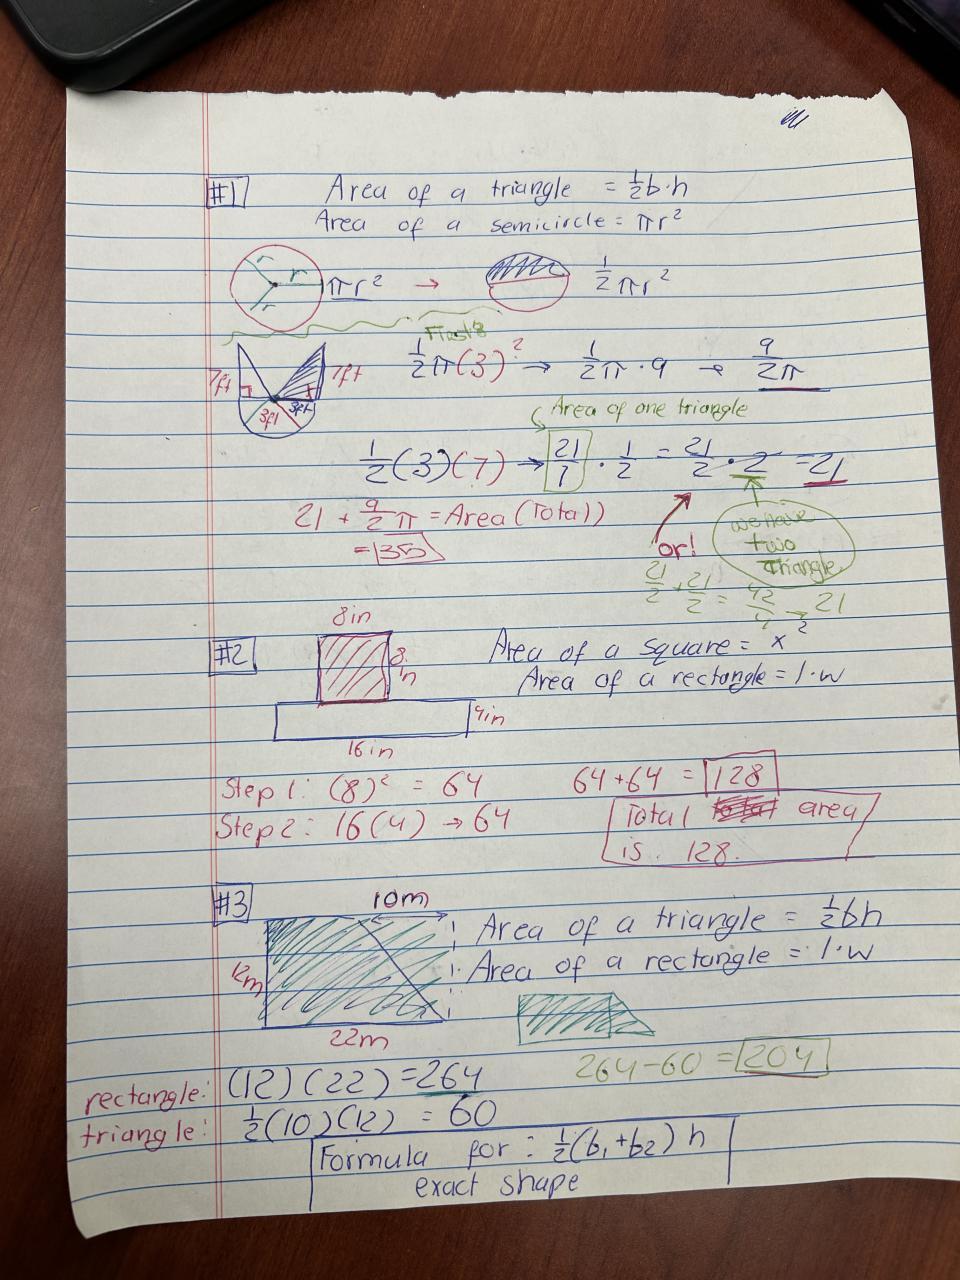 #1 Area of a triangle = 1/2 b·h
Area of a semicircle = πr²
r r r πr² → 1/2 πr²
7ft 7ft 3ft 3ft 1/2 π(3)² → 1/2 π · 9 → 9/2 π
Area of one triangle
1/2 (3)(7) → 21/1 · 1/2 = 21/2 · 2 = 21
21 + 9/2 π = Area (Total)
= 135
or!
we have
two
triangle
21/2 + 21/2 = 42/4 → 21
#2 8in
8in
4in
16in
Area of a square = x²
Area of a rectangle = l·w
Step 1: (8)² = 64 64+64 = 128
Step 2: 16(4) → 64
Total area
is. 128.
#3 10m
12m
22m
Area of a triangle = 1/2 bh
Area of a rectangle = l·w
264-60 = 204
rectangle: (12)(22) = 264
triangle: 1/2 (10)(12) = 60
Formula for : 1/2 (b₁+b₂) h
exact shape